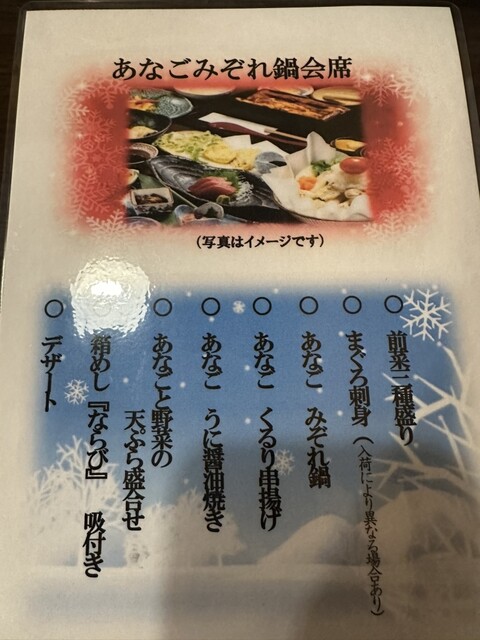 あなごみぞれ鍋会席
(写真はイメージです)
○ 前菜三種盛り
○ まぐろ刺身(入荷により異なる場合あり)
○ あなご みぞれ鍋
○ あなご くるり串揚げ
○ あなご うに醤油焼き
○ あなごと野菜の
天ぷら盛合せ
○ 箱めし『ならび』 吸付き
○ デザート